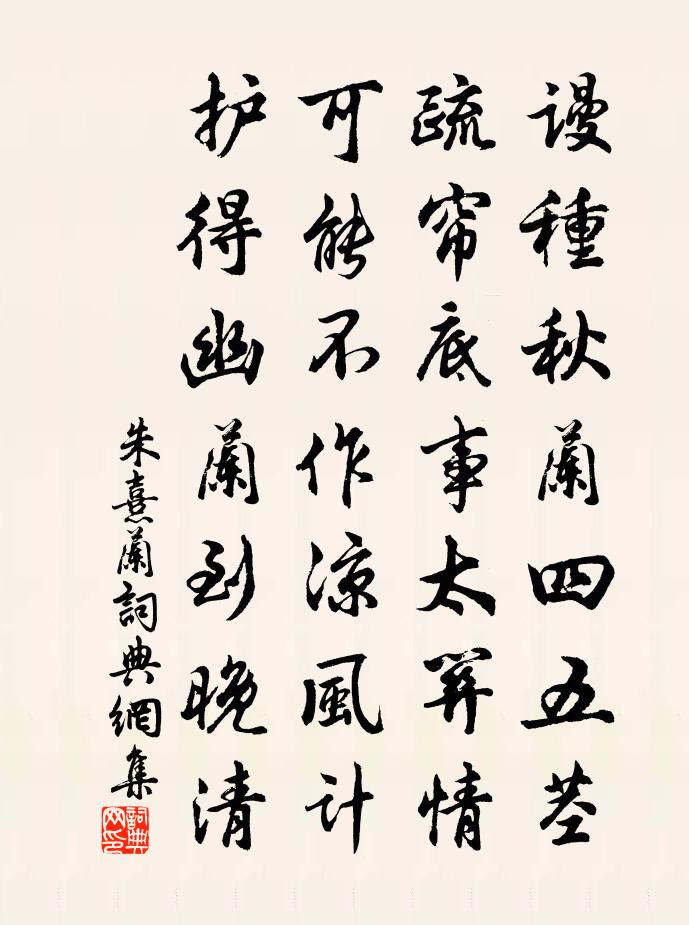 謾種秋蘭四五莖
疏帘底事太關情
可能不作涼風計
护得幽蘭到晚清
朱熹蘭詞典網集
詞典网印